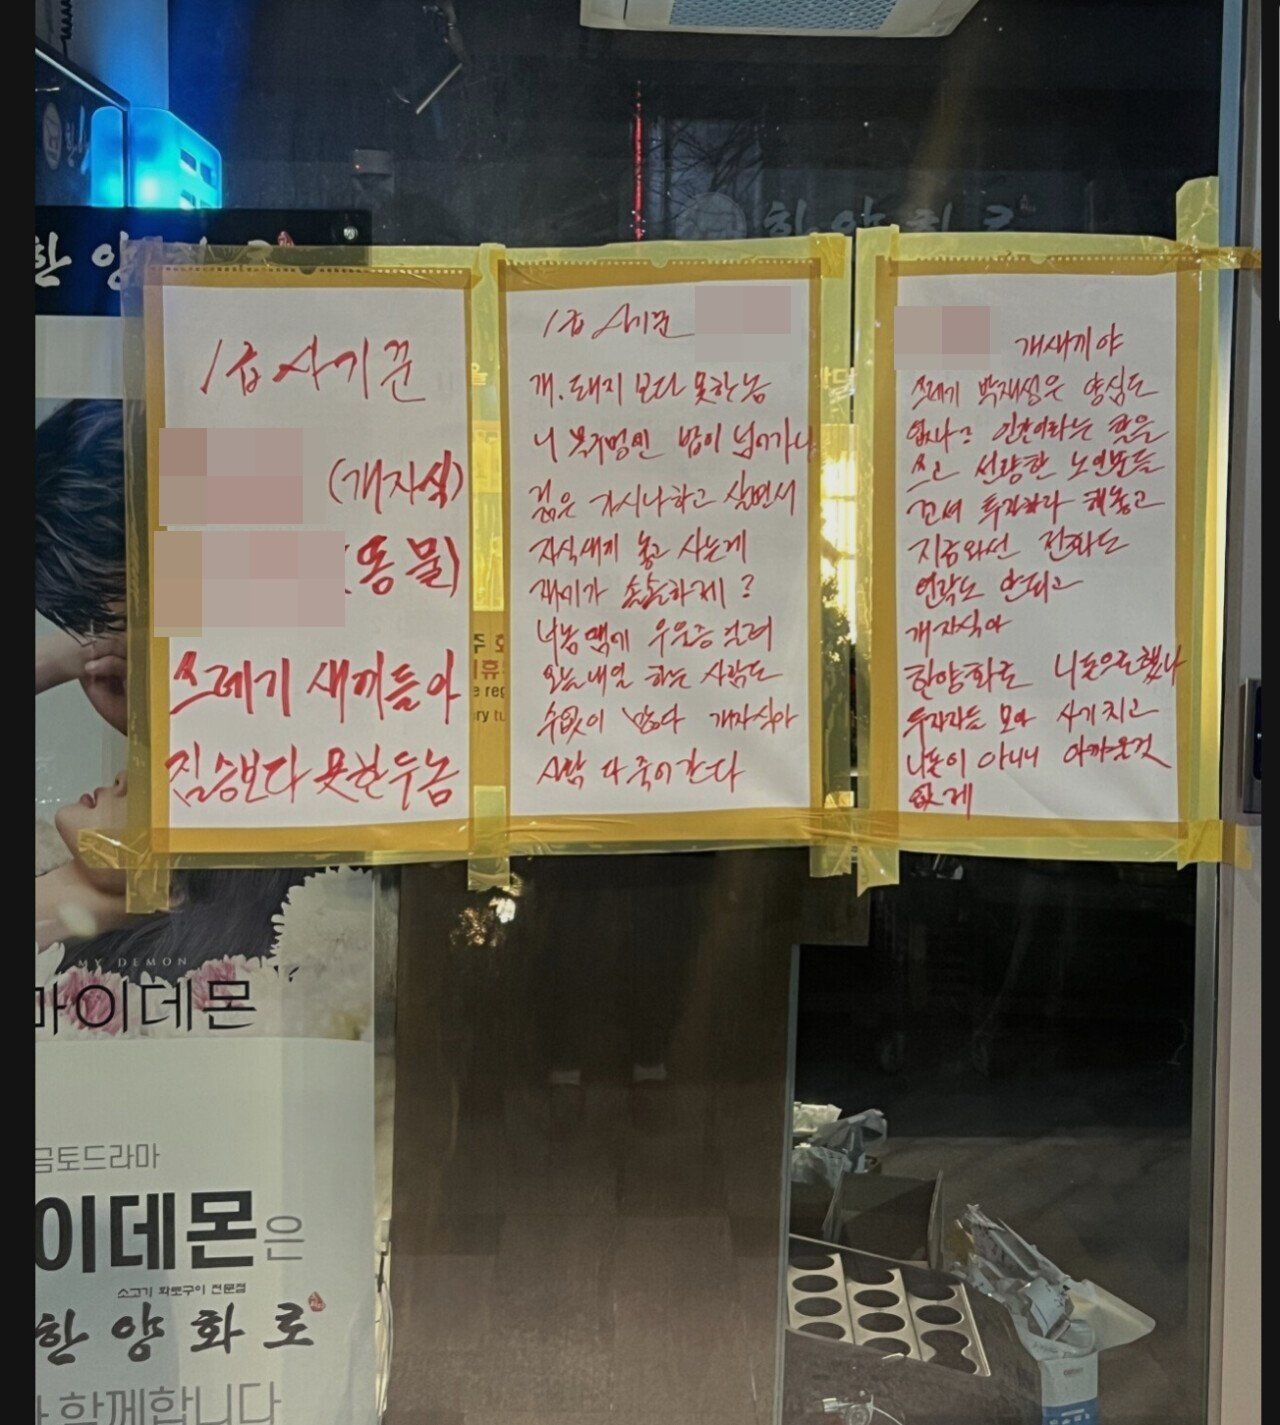 1급 사기꾼
(개자식)
(동물)
쓰레기 새끼들아
짐승보다 못한 두놈
1급 사기꾼
개.돼지 보다 못한놈
니 목구멍엔 밥이 넘어가나
젊은 가시나하고 살면서
자식새끼 놓고 사는게
재미가 솔솔하제?
너놈 땜에 우울증 걸려
오늘내일 하는 사람도
수없이 많다 개자식아
사람 다 죽이간다
개새끼야
쓰레기 박재성은 양심도
없나? 인간이라는 탈을
쓰고 선량한 노인분들
꼬셔 투자하라 해놓고
지금와선 전화도
연락도 안되고
개자식아
한양화로 니돈으로했나
투자자들 모아 사기치고
니돈이 아니니 아까운것
없제
한양화로
한양
MY DEMON
마이데몬
금토드라마
이데몬은
소고기 화로구이 전문점
한양화로
함께합니다